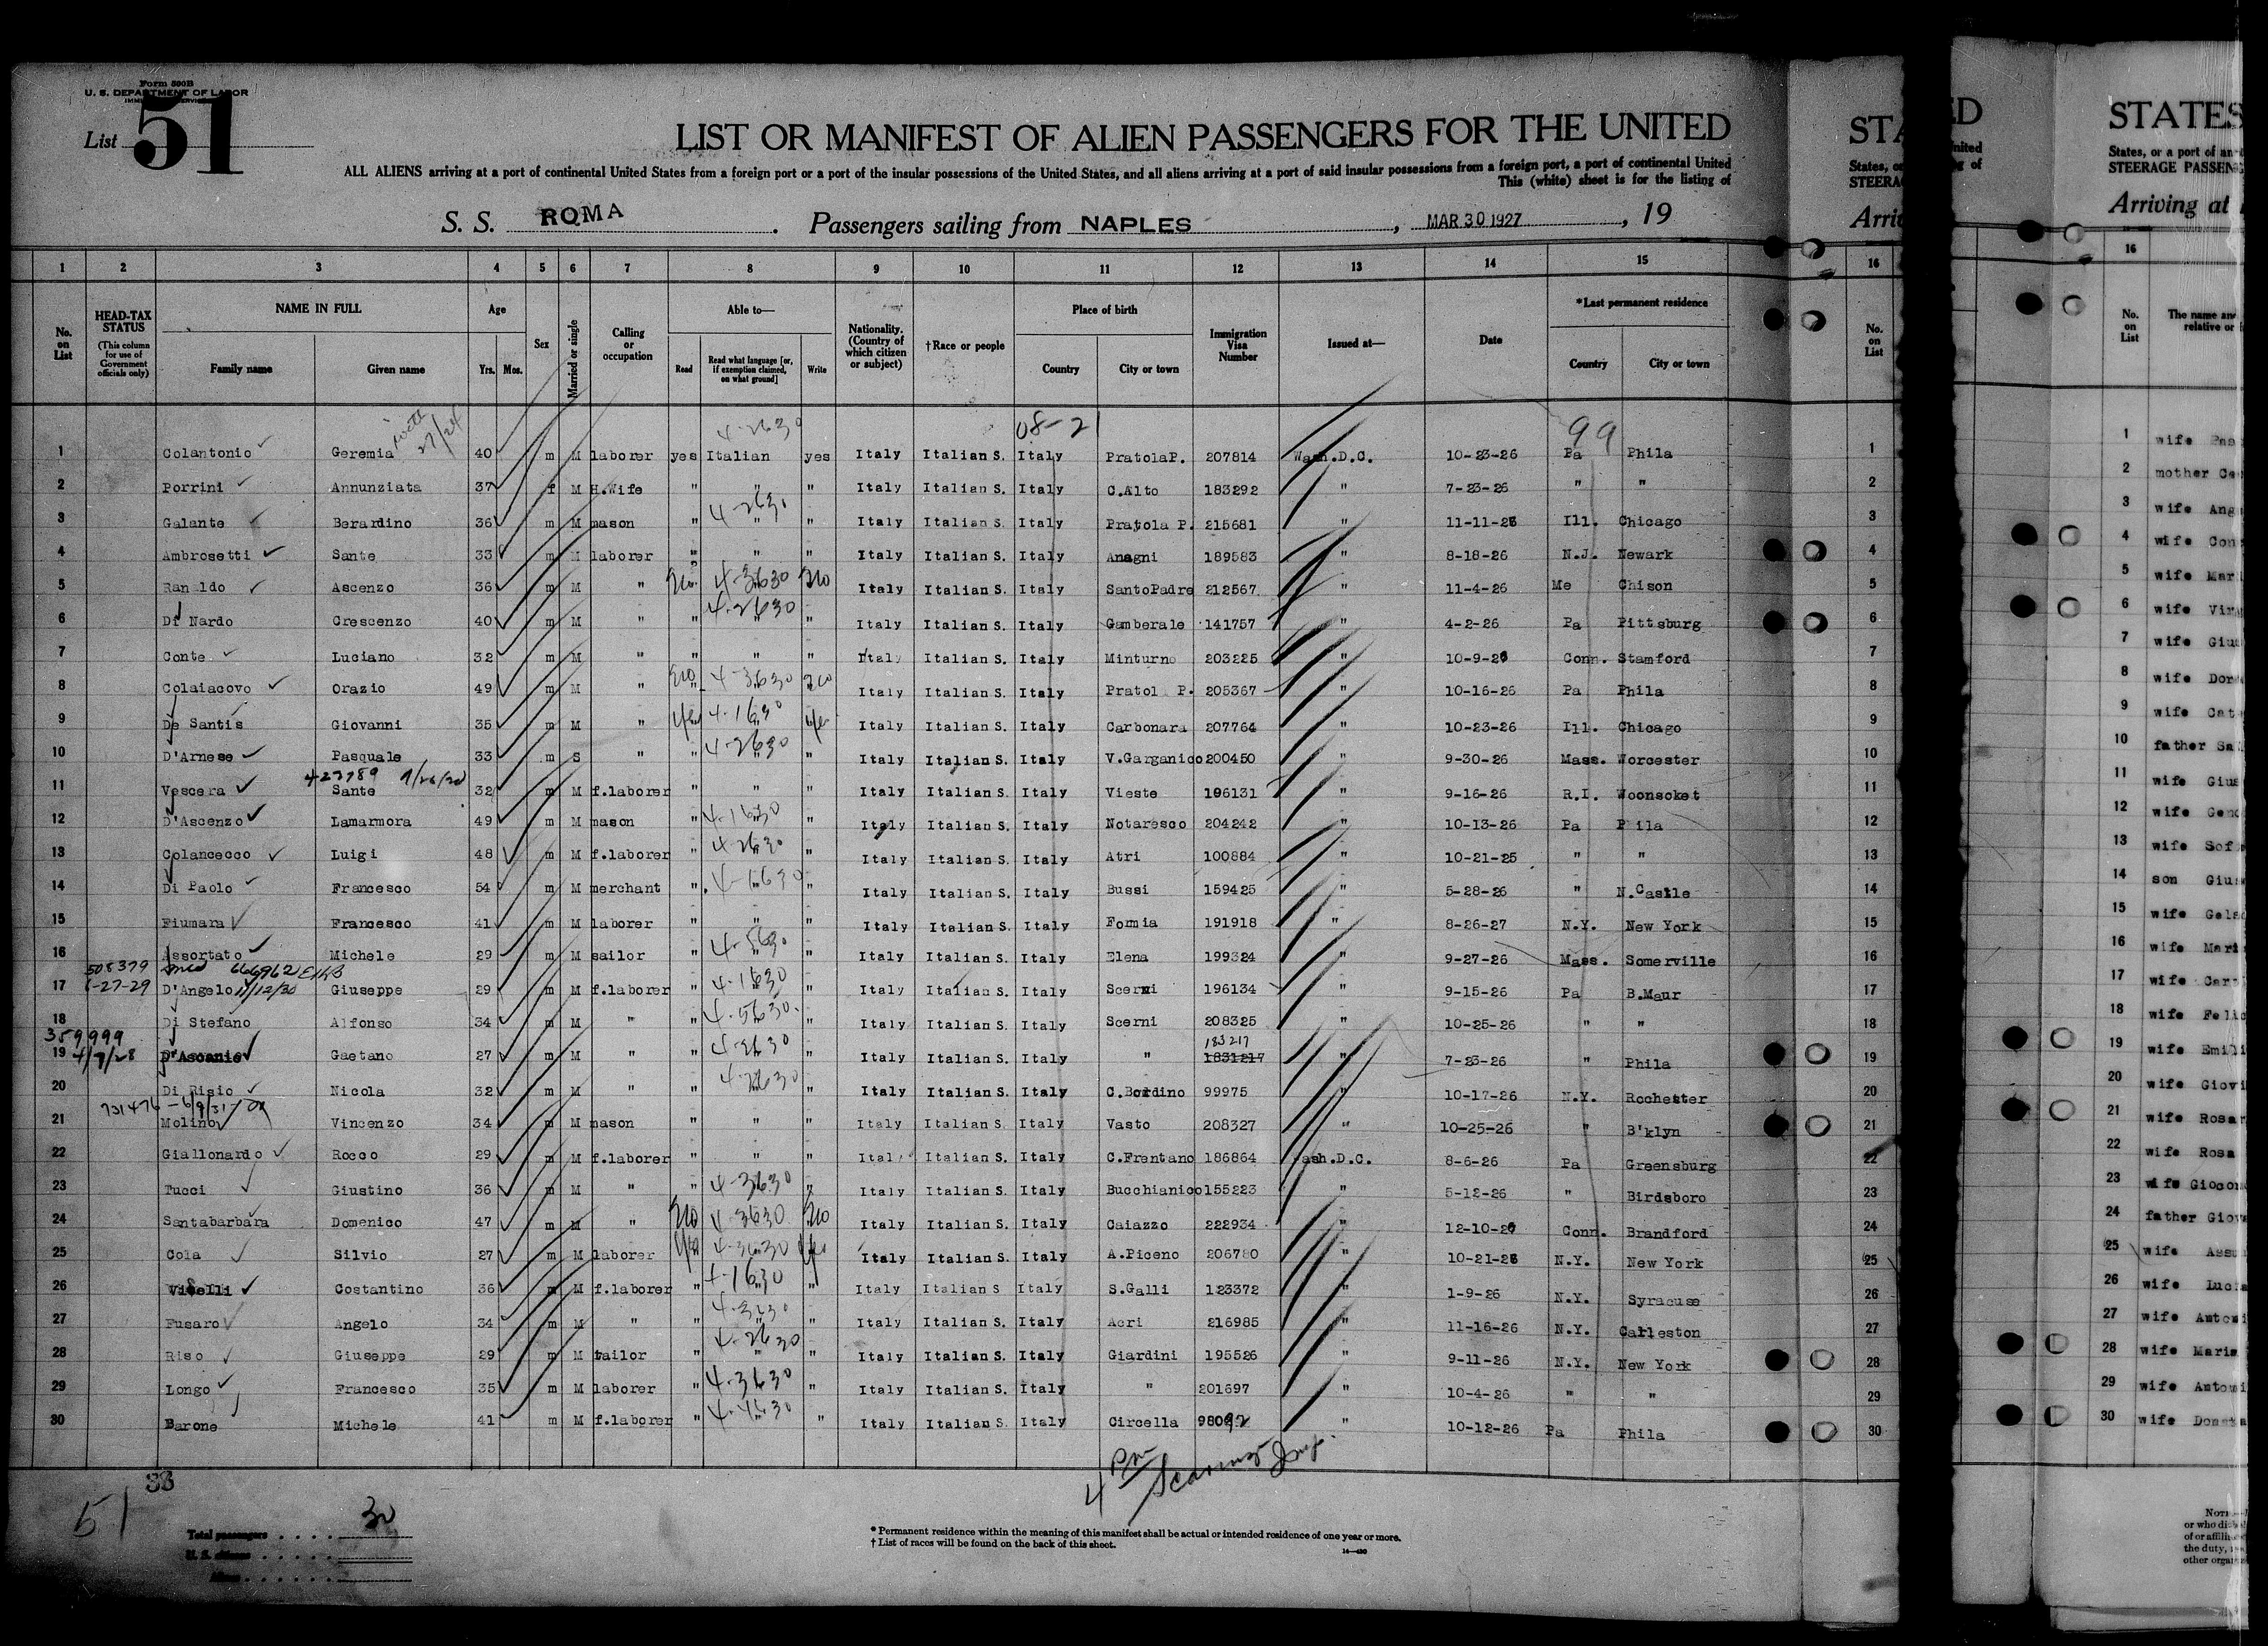 Form 500B
U. S. DEPARTMENT OF LABOR
List 51
LIST OR MANIFEST OF ALIEN PASSENGERS FOR THE UNITED
ALL ALIENS arriving at a port of continental United States from a foreign port or a port of the insular possessions of the United States, and all aliens arriving at a port of said insular possessions from a foreign port, a port of continental United
This (white) sheet is for the listing of
S. S. ROMA . Passengers sailing from NAPLES , MAR 30 1927 , 19
1 2 3 4 5 6 7 8 9 10 11 12 13 14 15
No. on List
HEAD-TAX STATUS (This column for use of Government officials only)
NAME IN FULL Family name Given name
Age Yrs. Mos.
Sex
Married or single
Calling or occupation
Able to— Read Read what language [or, if exemption claimed, on what ground] Write
Nationality. (Country of which citizen or subject)
†Race or people
Place of birth Country City or town
Immigration Visa Number
Issued at—
Date
*Last permanent residence Country City or town
4-2630 08-21 99
1 Colantonio Geremia 40 m M laborer yes Italian yes Italy Italian S. Italy PratolaP. 207814 Wash.D.C. 10-23-26 Pa Phila
2 Porrini Annunziata 37 f M H.Wife " " " Italy Italian S. Italy C.Alto 183292 " 7-23-26 " "
3 Galante Berardino 36 m M mason " 4-2630 " " Italy Italian S. Italy Pratola P. 215681 " 11-11-26 Ill. Chicago
4 Ambrosetti Sante 33 m M laborer " " " Italy Italian S. Italy Anagni 189583 " 8-18-26 N.J. Newark
5 Ranaldo Ascenzo 36 m M " no 4-3630 no Italy Italian S. Italy SantoPadre 212567 " 11-4-26 Me Chison
6 Di Nardo Crescenzo 40 m M " " 4-2630 " Italy Italian S. Italy Gamberale 141757 " 4-2-26 Pa Pittsburg
7 Conte Luciano 32 m M " " " " Italy Italian S. Italy Minturno 203225 " 10-9-26 Conn. Stamford
8 Colaiacovo Orazio 49 m M " no 4-3630 no Italy Italian S. Italy Pratol P. 205367 " 10-16-26 Pa Phila
9 De Santis Giovanni 35 m M " yes 4-1630 yes Italy Italian S. Italy Carbonara 207764 " 10-23-26 Ill. Chicago
10 D'Arnese Pasquale 33 m S " " 4-2630 " Italy Italian S. Italy V.Garganico 200450 " 9-30-26 Mass. Worcester
11 Vescera Sante 32 m M f.laborer " " " Italy Italian S. Italy Vieste 196131 " 9-16-26 R.I. Woonsocket
12 D'Ascenzo Lamarmora 49 m M mason " 4-1630 " Italy Italian S. Italy Notaresco 204242 " 10-13-26 Pa P ila
13 Colancecco Luigi 48 m M f.laborer " 4-2630 " Italy Italian S. Italy Atri 100884 " 10-21-25 " "
14 Di Paolo Francesco 54 m M merchant " 4-1630 " Italy Italian S. Italy Bussi 159425 " 5-28-26 " N.Castle
15 Fiumara Francesco 41 m M laborer " " " Italy Italian S. Italy Formia 191918 " 8-26-27 N.Y. New York
16 Assortato Michele 29 m M sailor " " Italy Italian S. Italy Elena 199324 " 9-27-26 Mass. Somerville
508379
17 D'Angelo 11/12/30 Giuseppe 29 m M f.laborer " 4-1630 " Italy Italian S. Italy Scerni 196134 " 9-15-26 Pa B.Maur
18 Di Stefano Alfonso 34 m M " " 4-5630 " Italy Italian S. Italy Scerni 208325 " 10-25-26 " "
359999 183217
19 4/7/28 D'Ascanio Gaetano 27 m M " " " Italy Italian S. Italy " 1831217 " 7-23-26 " Phila
20 Di Risio Nicola 32 m M " " " Italy Italian S. Italy C.Bordino 99975 " 10-17-26 N.Y. Rochester
731476 - 6/9/31
21 Molino Vincenzo 34 m M mason " " " Italy Italian S Italy Vasto 208327 " 10-25-26 " B'klyn
22 Giallonardo Rocco 29 m M f.laborer " " " Ital Italian S. Italy C.Frentano 186864 ash.D.C. 8-6-26 Pa Greensburg
23 Tucci Giustino 36 m M " " 4-3630 " Italy Italian S. Italy Bucchianico 155223 " 5-12-26 " Birdsboro
24 Santabarbara Domenico 47 m M " no 4-3630 no Italy Italian S. Italy Caiazzo 222934 " 12-10-26 Conn. Brandford
25 Cola Silvio 27 m M laborer yes 4-3630 yes Italy Italian S. Italy A.Piceno 206780 " 10-21-26 N.Y. New York
26 Costantino 36 m M f.laborer " 4-1630 " Italy Italian S Italy S.Galli 123372 " 1-9-26 N.Y. Syracuse
27 Fusaro Angelo 34 m M " " " Italy Italian S. Italy Acri 216985 " 11-16-26 N.Y. Carleston
28 Riso Giuseppe 29 m M tailor " 4-2630 " Italy Italian S. Italy Giardini 195526 " 9-11-26 N.Y. New York
29 Longo Francesco 35 m M laborer " 4-3630 " Italy Italian S. Italy " 201697 " 10-4-26 " "
30 Barone Michele 41 m M f.laborer " 4-4630 " Italy Italian S. Italy Circella 98092 " 10-12-26 Pa Phila
4 Pm
51
Total passengers 30
U. S. citizens
Aliens
* Permanent residence within the meaning of this manifest shall be actual or intended residence of one year or more.
† List of races will be found on the back of this sheet.
STA
States, or
STEERA
Arri
16
No. on List
1
2
3
4
5
6
7
8
9
10
11
12
13
14
15
16
17
18
19
20
21
22
23
24
25
26
27
28
29
30
ED
nited
g of
STATES
States, or a port of an
STEERAGE PASSENG
Arriving at
16
No. on List
The name and
relative or
1 wife Pas
2 mother Ce
3 wife Ang
4 wife Con
5 wife Mar
6 wife Vin
7 wife Giu
8 wife Dor
9 wife Cat
10 father Sa
11 wife Gius
12 wife Geno
13 wife Sof
14 son Giu
15 wife Gels
16 wife Mari
17 wife Carm
18 wife Felic
19 wife Emil
20 wife Giov
21 wife Rosar
22 wife Rosa
23 wife Giocon
24 father Giov
25 wife Assu
26 wife Luc
27 wife Anton
28 wife Maria
29 wife Antoni
30 wife Donat
NOT
or who di
of or affili
the duty,
other organ